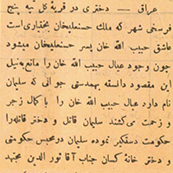 عراق — دختری در قریهٔ گل تپه پنج
فرسخی شهر که ملك حسنعلیخان بختیاری است
عاشق حبیب الله خان پسر حسنعلیخان میشود
چون وجود عیال حبیب الله خان را مانع به نیل
این مقصود دانسته بهمدستی جوانی که سلمان
نام دارد عیال حبیب الله خان را با کمال زجر
و زحمت می‌کشند سلمان قاتل و دختر قاتله را
حکومت دستگیر نموده سلمان در محبس حکومتی
و دختر خانهٔ کسان جناب آقا نور الدین مجتهد